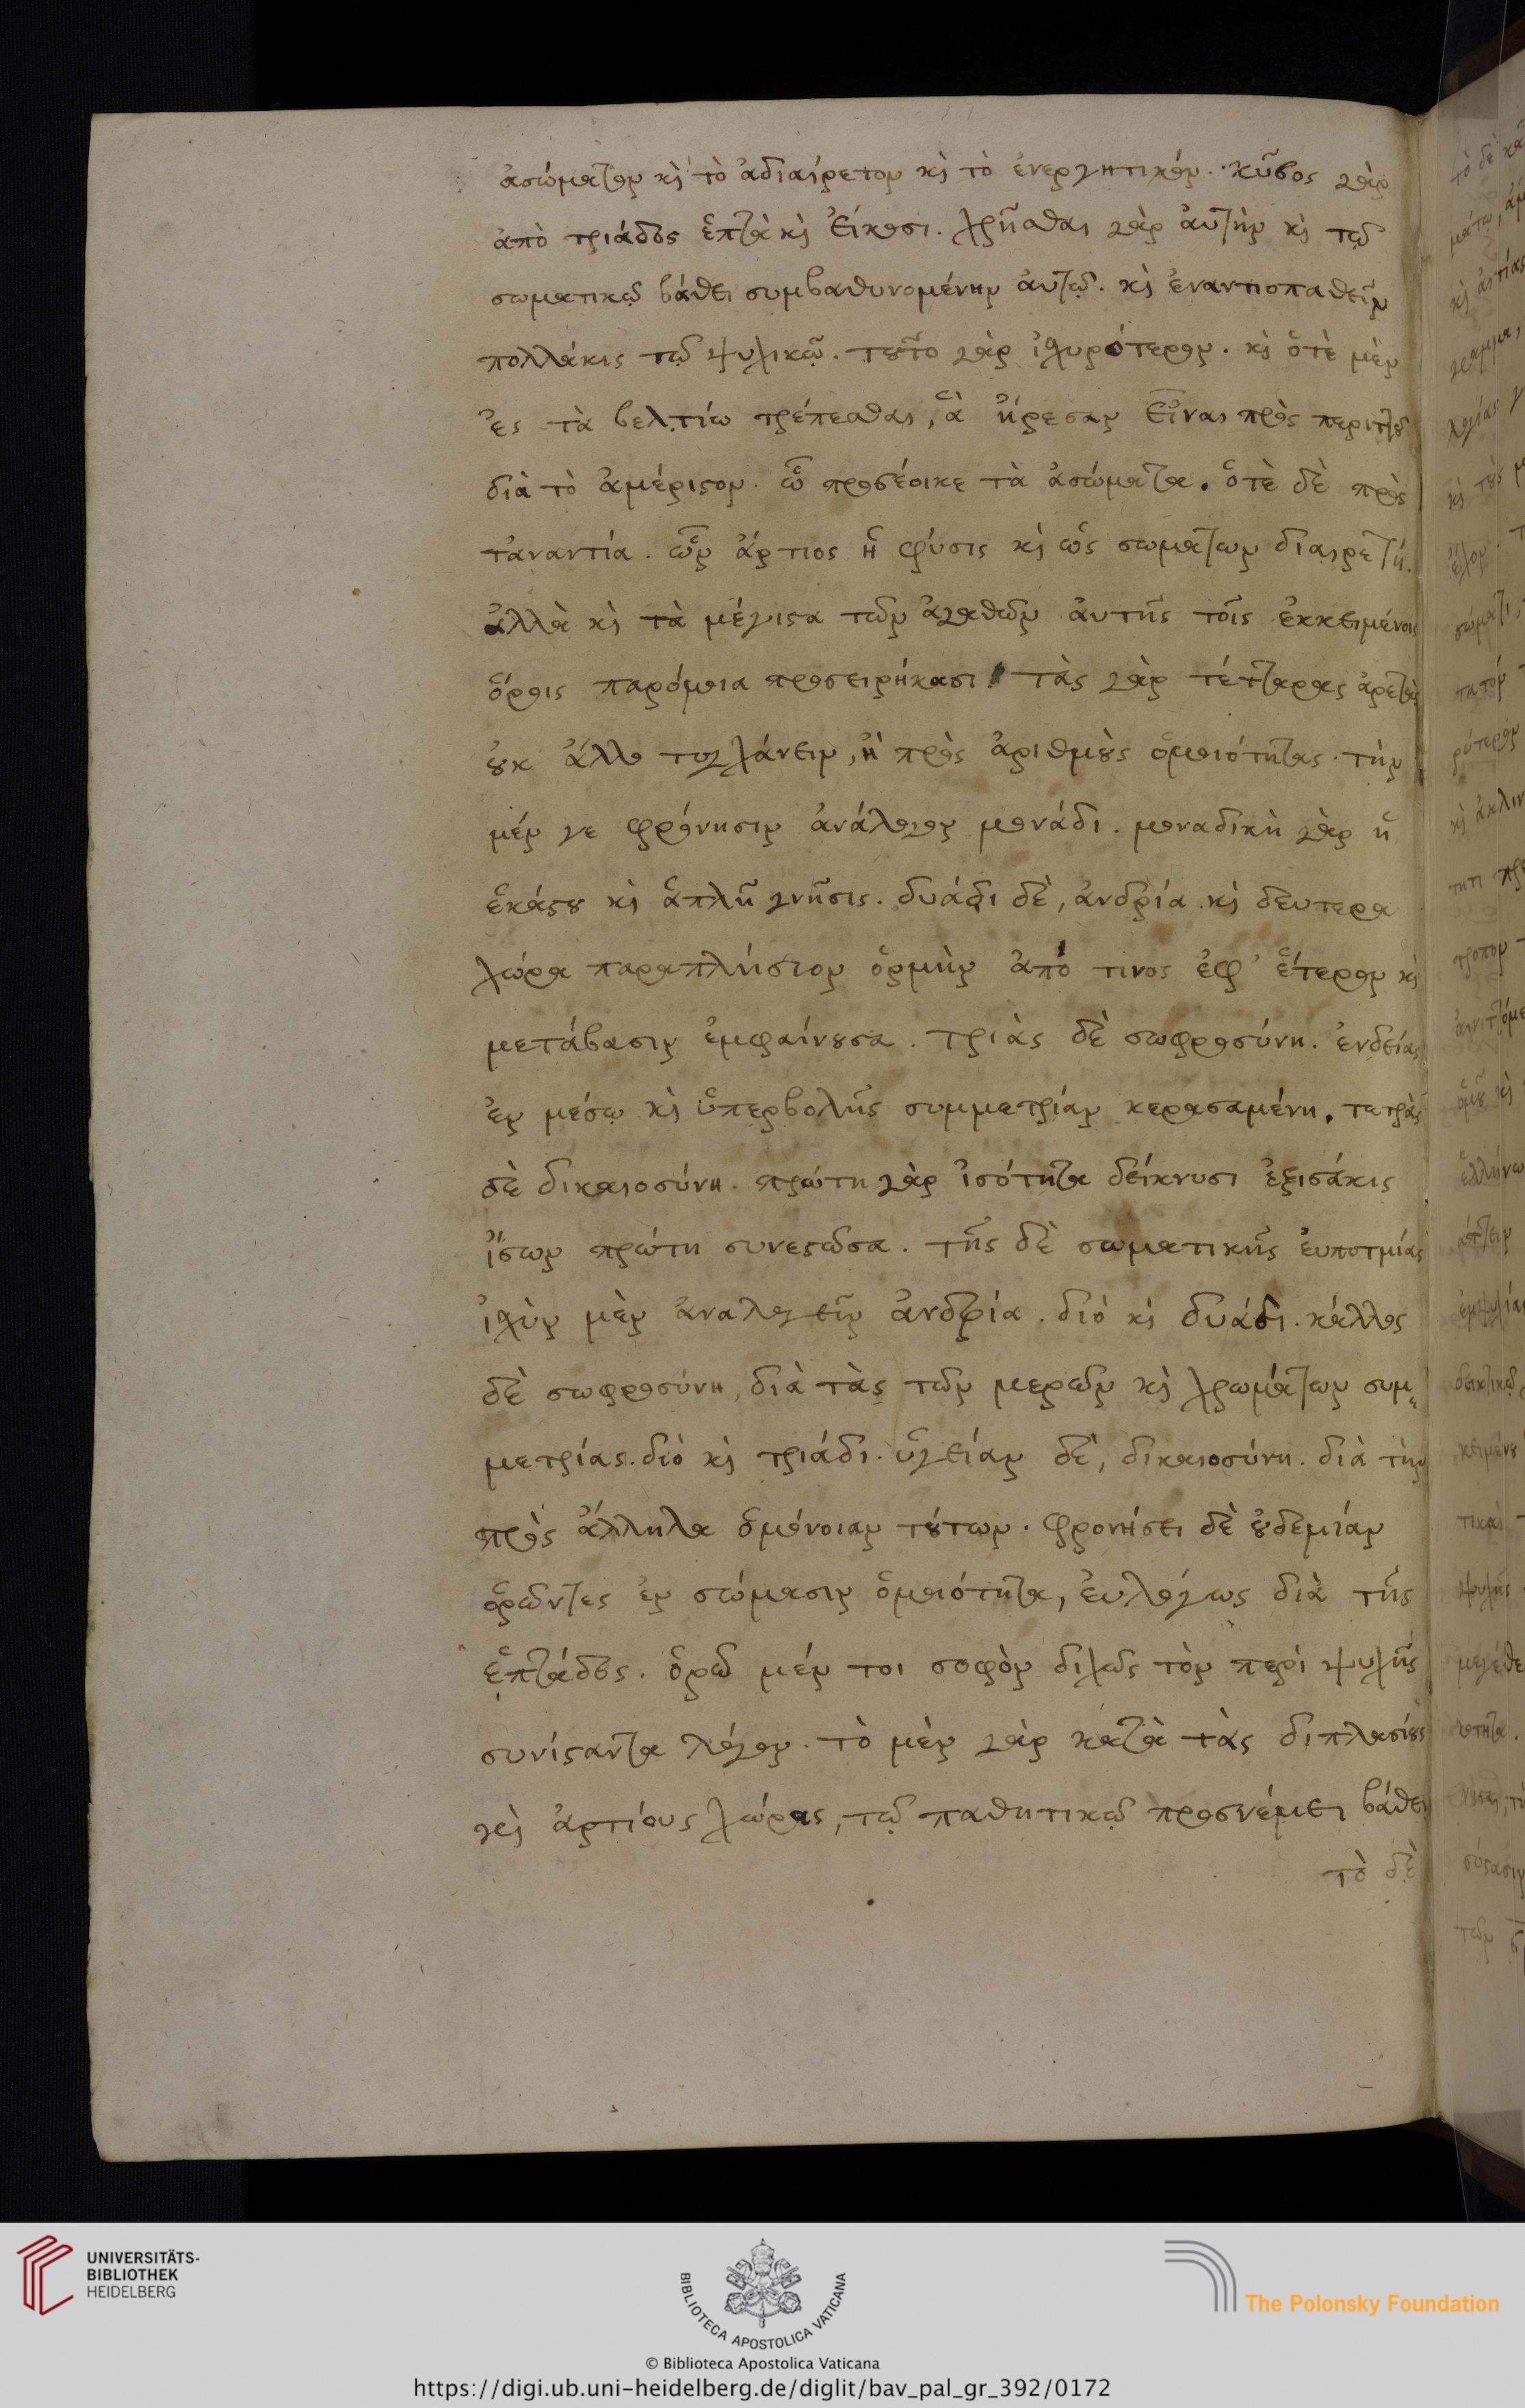 ἀσώματον κὶ τὸ ἀδιαίρετον κὶ τὸ ἐνεργητικόν. κῦβος γὰρ
ἀπὸ τριάδος ἑπτὰ κὶ εἴκοσι. χρῆσθαι γὰρ αὐτὴν κὶ τῷ
σωματικῷ βάθει συμβαθυνομένην αὐτῷ. κὶ ἐναντιοπαθεῖν
πολλάκις τῷ ψυχικῷ. τοῦτο γὰρ ἰσχυρότερον. κὶ ὁτὲ μὲν
ἐς τὰ βελτίω τρέπεσθαι, ἃ ἤρεσαν εἶναι πρὸς περιττοῦ
διὰ τὸ ἀμέριστον. ᾧ προσέοικε τὰ ἀσώματα. ὁτὲ δὲ πρὸς
τἀναντία. ὧν ἄρτιος ἡ φύσις κὶ ὡς σωμάτων διαιρετή.
ἀλλὰ κὶ τὰ μέγιστα τῶν ἀγαθῶν αὐτῆς τοῖς ἐκκειμένοις
ὅροις παρόμοια προσειρήκασι. τὰς γὰρ τέτταρας ἀρετὰς
οὐκ ἄλλο τυγχάνειν, ἢ πρὸς ἀριθμοὺς ὁμοιότητας. τὴν
μέν γε φρόνησιν ἀνάλογον μονάδι. μοναδικὴ γὰρ ἡ
ἑκάστου κὶ ἁπλῆ γνῆσις. δυάδι δὲ, ἀνδρία κὶ δευτέρα
χώρα παραπλήσιον ὁρμὴν ἀπό τινος ἐφ' ἕτερον κὶ
μετάβασιν ἐμφαίνουσα. τριὰς δὲ σωφροσύνη. ἐνδείας
ἐν μέσῳ κὶ ὑπερβολῆς συμμετρίαν κερασαμένη. τετρὰς
δὲ δικαιοσύνη. πρώτη γὰρ ἰσότητα δείκνυσι ἐξισάκις
ἴσων πρώτη συνεστῶσα. τῆς δὲ σωματικῆς εὐποτμίας
ἰσχὺν μὲν ἀναλογεῖν ἀνδρία. διὸ κὶ δυάδι. κάλλος
δὲ σωφροσύνη, διὰ τὰς τῶν μερῶν κὶ χρωμάτων συμ-
μετρίας. διὸ κὶ τριάδι. ὑγείαν δὲ, δικαιοσύνη. διὰ τὴν
πρὸς ἄλληλα ὁμόνοιαν τούτων. φρονήσει δὲ οὐδεμίαν
ὁρῶντες ἐν σώμασιν ὁμοιότητα, εὐλόγως διὰ τῆς
ἑπτάδος. ὁρῶ μέν τοι σοφὸν διχῶς τὸν περὶ ψυχῆς
συνίσταντα λόγον. τὸ μὲν γὰρ κατὰ τὰς διπλασίους
κὶ ἀρτίους χώρας, τῷ παθητικῷ προσνέμει βάθει
τὸ δὲ
UNIVERSITÄTS-
BIBLIOTHEK
HEIDELBERG
BIBLIOTECA APOSTOLICA VATICANA
The Polonsky Foundation
© Biblioteca Apostolica Vaticana
https://digi.ub.uni-heidelberg.de/diglit/bav_pal_gr_392/0172